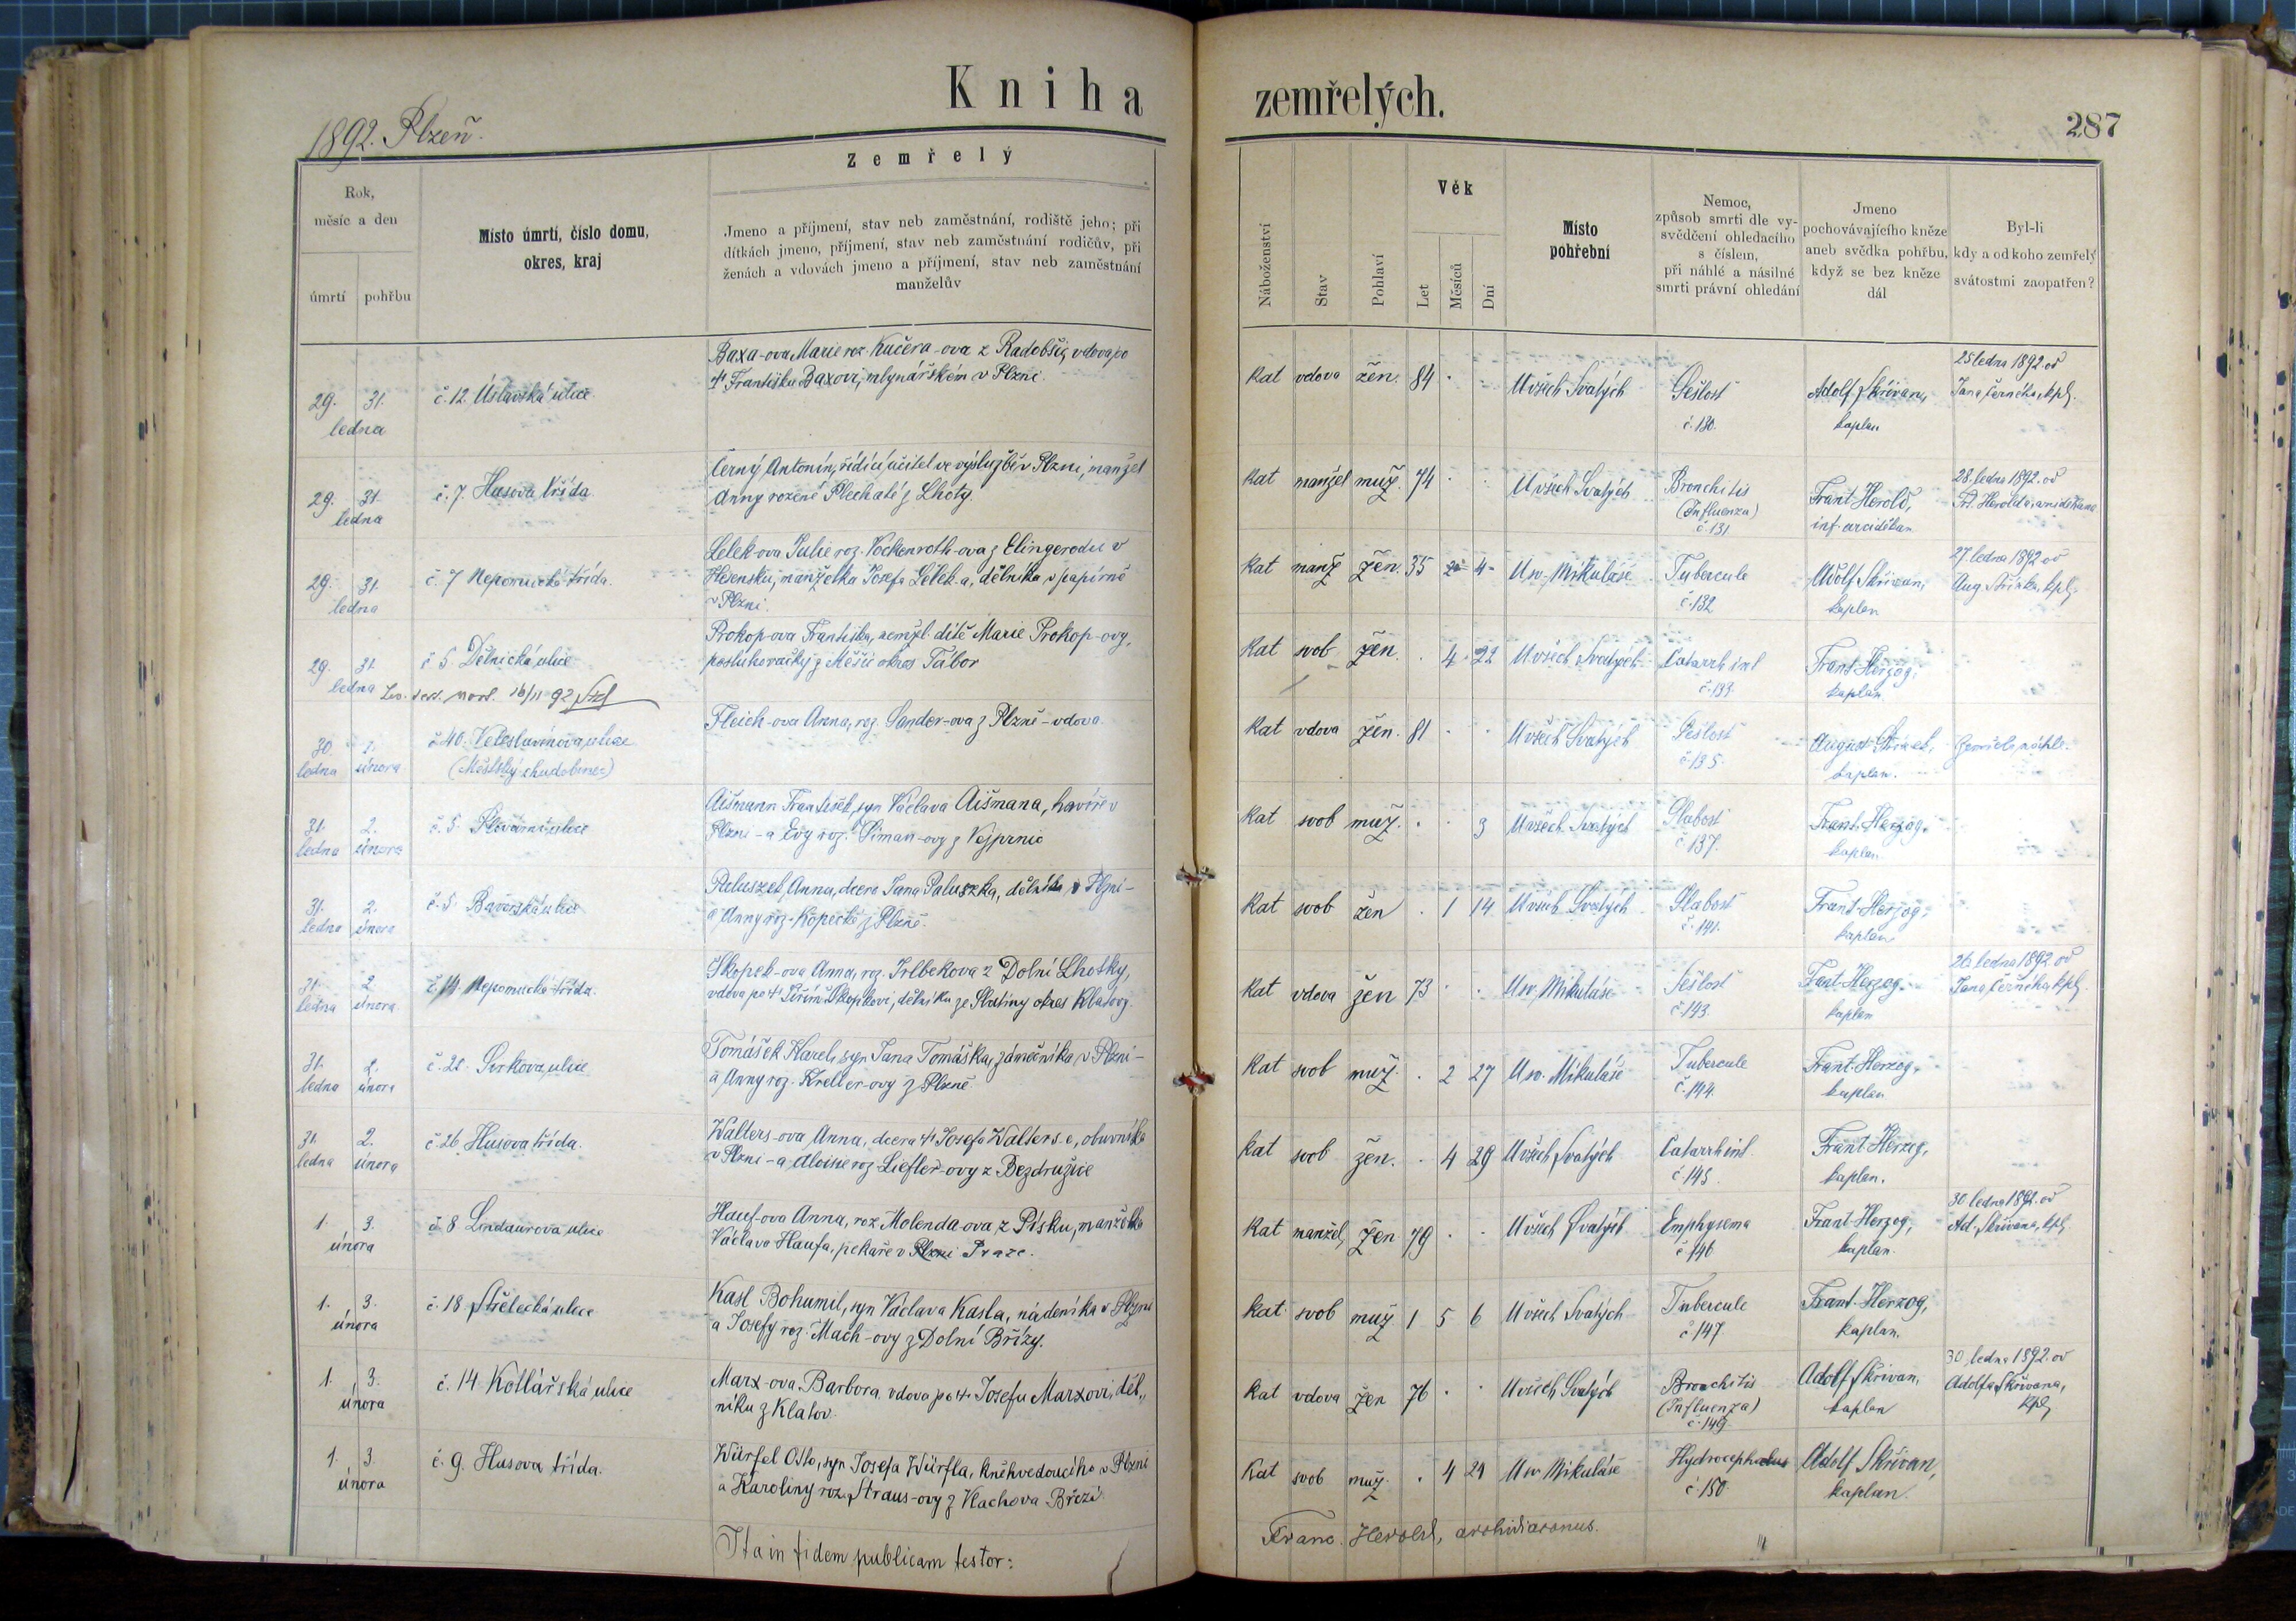 Kniha zemřelých.
1892. Plzeň.
287
Rok, měsíc a den
úmrtí
pohřbu
Místo úmrtí, číslo domu, okres, kraj
Zemřelý
Jmeno a příjmení, stav neb zaměstnání, rodiště jeho; při
dítkách jmeno, příjmení, stav neb zaměstnání rodičův, při
ženách a vdovách jmeno a příjmení, stav neb zaměstnání
manželův
Náboženství
Stav
Pohlaví
Věk
Let
Měsíců
Dní
Místo pohřební
Nemoc,
způsob smrti dle vy-
svědčení ohledacího
s číslem,
při náhlé a násilné
smrti právní ohledání
Jmeno
pochovávajícího kněze
aneb svědka pohřbu,
když se bez kněze
dál
Byl-li
kdy a od koho zemřelý
svátostmi zaopatřen?
29. 31. ledna
č. 12. Úslavská ulice
Baxa-ova Marie roz. Kučera-ova z Radobšic, vdova po
† Františku Baxovi, mlynářském v Plzni.
Kat vdova žen. 84 · · U všech Svatých
Sešlost
č. 130.
Adolf Skřivan,
kaplan
25 ledna 1892 od
Jana Černého, kpl.
29. 31. ledna
č. 7. Husova třída
Černý Antonín, řídící učitel ve výslužbě v Plzni, manžel
Anny rozené Plechaté z Lhoty.
Kat manžel muž. 74 · · U všech Svatých
Bronchitis
(Influenza)
č. 131
Frant Herold,
inf. arciděkan
28. ledna 1892. od
Fr. Herolda, arciděkana
29. 31. ledna
č. 7 Nepomucká třída.
Lelek-ova Julie roz. Vockenroth-ova z Elingerodu v
Hesensku, manželka Josefa Lelek-a, dělníka v papírně
v Plzni.
Kat manž žen. 35 2 4 U sv. Mikuláše
Tubercule
č. 132
Adolf Skřivan,
kaplan
27 ledna 1892 od
Aug. kpl.
29. 31. ledna
č 5. Dělnická ulice
Prokop-ova Františka, nemžl. dítě Marie Prokop-ovy,
posluhovačky z Měšic okres Tábor
Kat svob žen. · 4 22 U všech Svatých
Catarrh int
č. 133.
Frant Herzog,
kaplan
30 ledna 1. února
č 40. Veleslavínova ulice
(Městský chudobinec)
Fleich-ova Anna, roz. Sander-ova z Plzně - vdova.
Kat vdova žen. 81 · · U všech Svatých
Sešlost
č. 135.
August
kaplan.
Zemřela náhle.
31. ledna 2. února
č. 5.
Aišmann František, syn Václava Aišmana, havíře v
Plzni - a Evy roz. Šiman-ovy z Vejprnic
Kat svob muž. · · 3 U všech Svatých
Slabost
č 137.
Frant. Herzog,
kaplan
31. ledna 2. února
č. 5. Bavorská ulice
Paluszek Anna, dcera Jana Paluszka, dělníka v Plzni -
a Anny roz. Kopecké z Plzně.
Kat svob žen · 1 14 U všech Svatých
Slabost
č. 141.
Frant. Herzog,
kaplan
31. ledna 2. února
č. 14 Nepomucká třída.
Skopek-ova Anna, roz. Trlbekova z Dolní Lhotky,
vdova po † Skopkovi, dělníku ze Slatiny okres Klatovy.
Kat vdova žen 73 · · U sv. Mikuláše
Sešlost
č. 143.
Frant. Herzog.
kaplan
26 ledna 1892 od
Jana Černého, kpl.
31. ledna 2. února
č. 21. ulice
Tomášek Karel, syn Jana Tomáška, zámečníka v Plzni -
a Anny roz. Kreller-ovy z Plzně
Kat svob muž. · 2 27 U sv. Mikuláše
Tubercule
č. 144.
Frant. Herzog,
kaplan
31. ledna 2. února
č. 26 Husova třída.
Walters-ova Anna, dcera † Josefa Walters-e, obuvníka
v Plzni - a Aloisie roz. Liefler-ovy z Bezdružic
Kat svob žen. · 4 29 U všech Svatých
Catarrh int.
č 145.
Frant Herzog,
kaplan.
1. 3. února
č 8 Lindaurova ulice
Hauf-ova Anna, roz Molenda-ova z Písku, manželka
Václava Haufa, pekaře v Plzni Praze.
Kat manžel, žen 79 · · U všech Svatých
Emphysema
č 146
Frant Herzog,
kaplan.
30 ledna 1892. od
Ad. Skřivana, kpl,
1. 3. února
č. 18 Střelecká ulice
Kasl Bohumil, syn Václava Kasla, nádeníka v Plzni
a Josefy roz. Mach-ovy z Dolní Břízy.
Kat svob muž 1 5 6 U všech Svatých
Tubercule
č 147.
Frant. Herzog,
kaplan.
1. 3. února
č. 14 Kotlářská ulice
Marx-ova Barbora vdova po † Josefu Marxovi, děl„
níku z Klatov.
Kat vdova žen 76 · · U všech Svatých
Bronchitis
(Influenza)
č. 149
Adolf Skřivan,
kaplan
30. ledna 1892. od
Adolfa Skřivana,
kpl,
1. 3. února
č. 9. Husova třída.
Würfel Otto, syn Josefa Würfla, kněhvedoucího v Plzni
a Karoliny roz. Straus-ovy z Vlachova Březí.
Kat svob muž. · 4 21 U sv Mikuláše
Hydrocephalus
č 150
Adolf Skřivan,
kaplan.
Ita in fidem publicam testor:
Franc. Herold, archidiaconus.